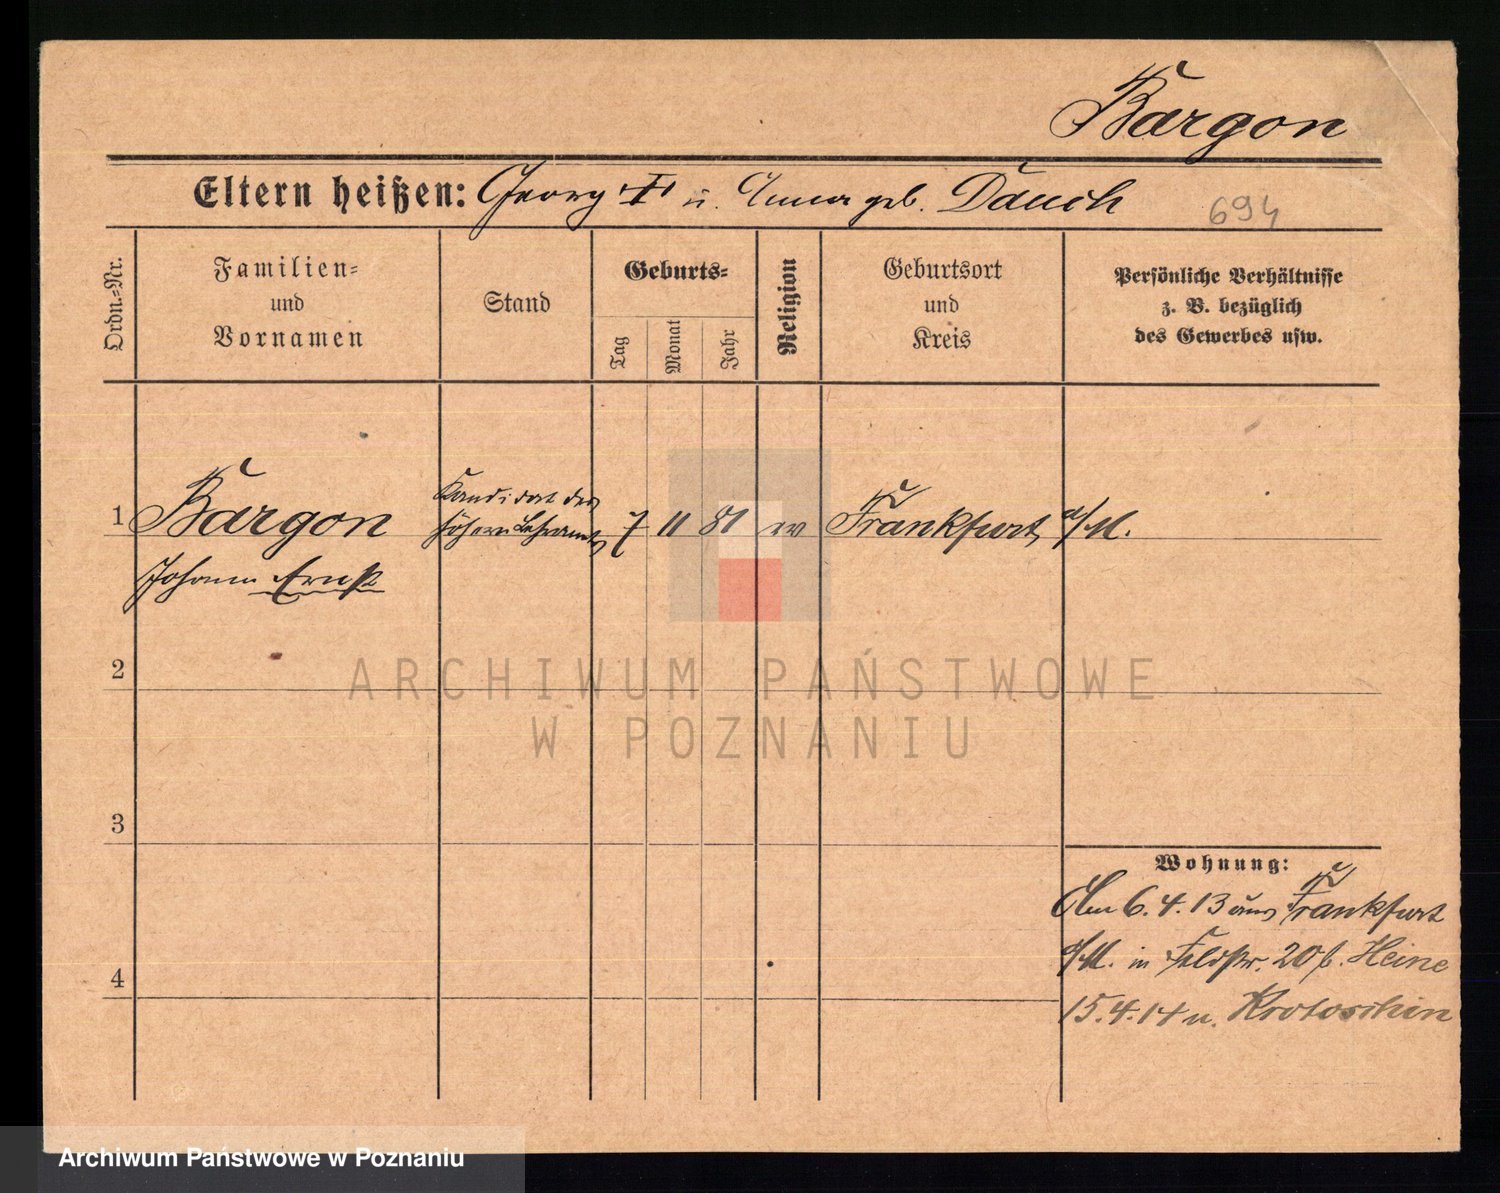 Bargon
Eltern heißen: Georg † u. Anna geb. Dauch
694
Ordn.-Nr.
Familien-
und
Vornamen
Stand
Geburts-
Tag
Monat
Jahr
Religion
Geburtsort
und
Kreis
Persönliche Verhältnisse
z. B. bezüglich
des Gewerbes usw.
1 Bargon Kandidat des höhern Lehramts 7 11 81 ev Frankfurt a/M.
Johann Ernst
2
ARCHIWUM PAŃSTWOWE
W POZNANIU
3
4
Wohnung:
Am 6.4.13 aus Frankfurt
a/M. in Feldstr. 20 b. Heine
15.4.14 n. Krotoschin
Archiwum Państwowe w Poznaniu